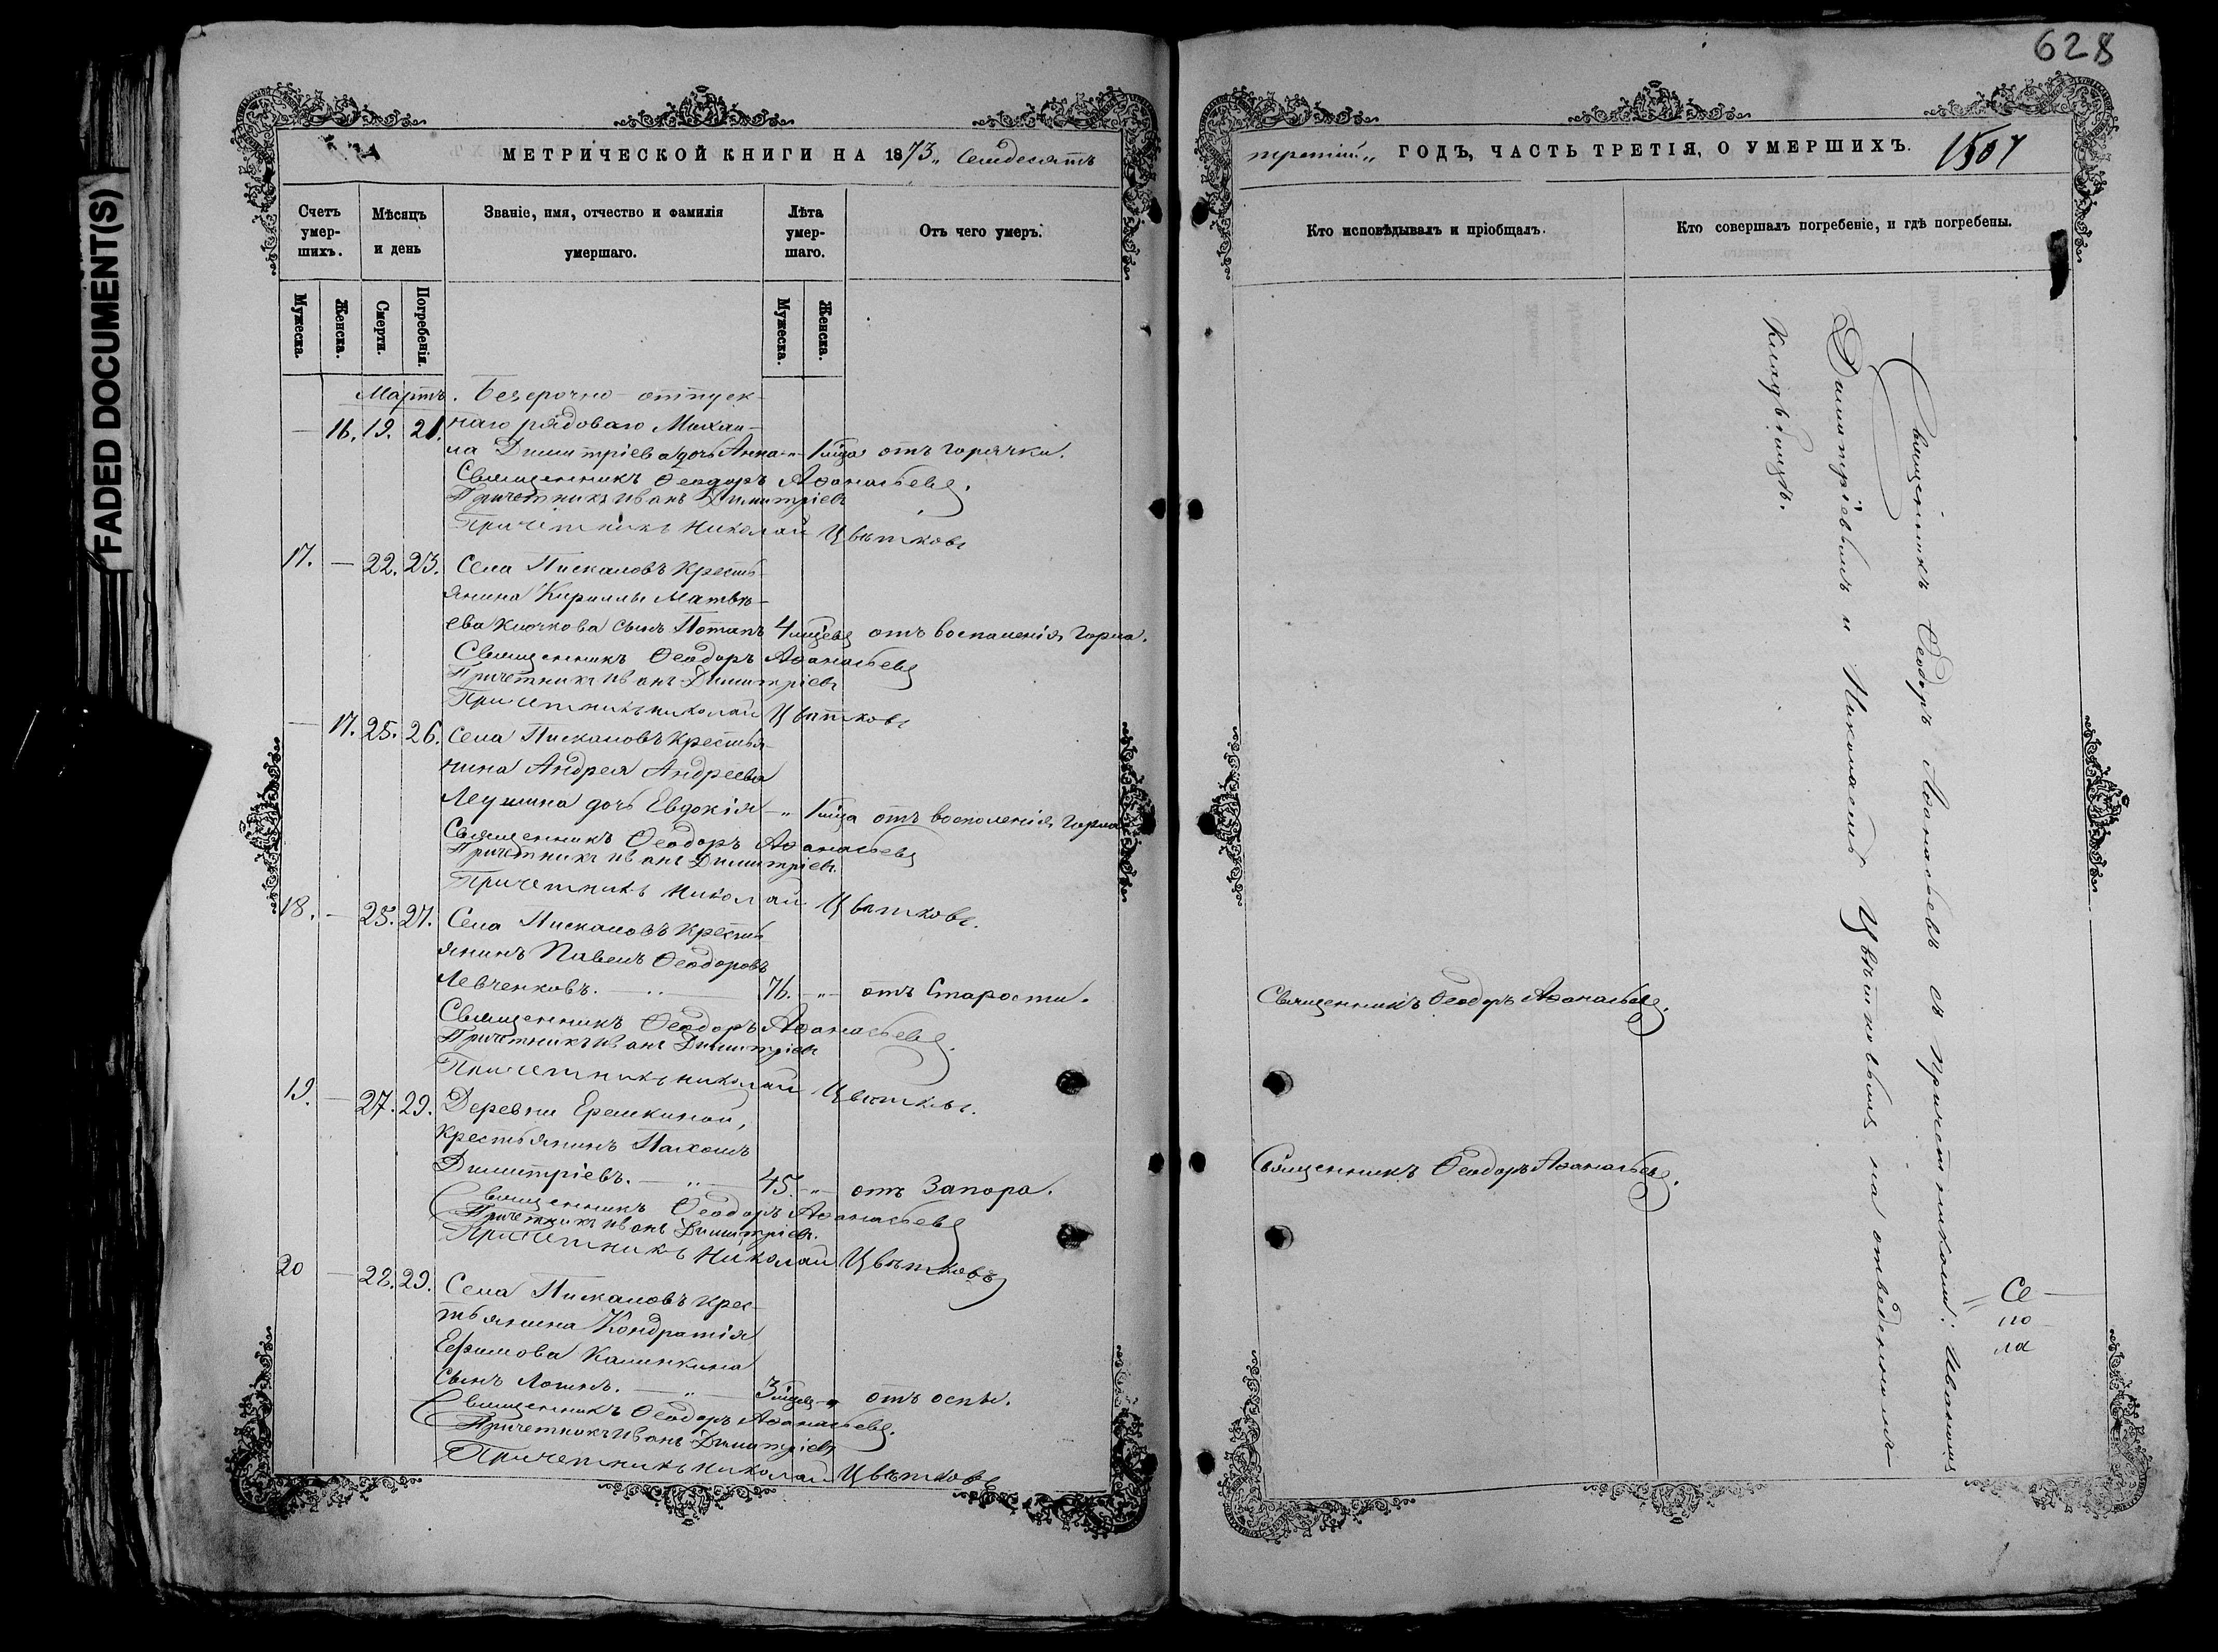 FADED DOCUMENT(S)
МЕТРИЧЕСКОЙ КНИГИ НА 1873„ Семдесятъ
Счетъ умер-шихъ.
Мѣсяцъ и день
Званіе, имя, отчество и фамилія умершаго.
Лѣта умер-шаго.
Отъ чего умеръ.
Мужеска.
Женска.
Смерти.
Погребенія.
Мужеска.
Женска.
Мартъ. Безсрочно-отпуск-
— 16. 19. 21. наго рядоваго Михаи-
ла Димитріева дочь Анна - „ 1 мца отъ горячки.
Священникъ Ѳеодоръ Аѳанасьевъ.
Причетникъ Иванъ Димитріевъ
Причетникъ Николай Цвѣтковъ
17. — 22. 23. Села Пискаловъ Кресть-
янина Кириллы Матвѣ-
ева Клочкова сынъ Потапъ 4 мцевъ отъ воспаленія горла.
Священникъ Ѳеодоръ Аѳанасьевъ
Причетникъ Иванъ Димитріевъ
Причетникъ Николай Цвѣтковъ
— 17. 25. 26. Села Пискаловъ Крестья-
нина Андрея Андреева
дочь Евдокія - „ 1 мца отъ восполенія горла
Священникъ Ѳеодоръ Аѳанасьевъ
Причетникъ Иванъ Димитріевъ.
Причетникъ Николай Цвѣтковъ.
18. — 25. 27. Села Пискаловъ Кресть-
янинъ Павелъ Ѳеодоровъ
Левченковъ. — „ — 76. - „ - отъ Старости.
Священникъ Ѳеодоръ Аѳанасьевъ.
Причетникъ Иванъ Димитріевъ
Причетникъ Николай Цвѣтковъ.
19. — 27. 29. Деревни Еремкиной,
крестьянинъ Пахомъ
Димитріевъ. — „ — 45. - „ - отъ Запора.
Священникъ Ѳеодоръ Аѳанасьевъ
Причетникъ Иванъ Димитріевъ.
Причетникъ Николай Цвѣтковъ
20 — 28. 29. Села Пискаловъ крес-
тьянина Кондратія
Ефимова Калинкина
сынъ Логинъ. — „ — 3 мцев - „ отъ оспы.
Священникъ Ѳеодоръ Аѳанасьевъ.
Причетникъ Иванъ Димитріевъ
Причетникъ Николай Цвѣтковъ
628
третій„ ГОДЪ, ЧАСТЬ ТРЕТІЯ, О УМЕРШИХЪ.
Кто исповѣдывалъ и пріобщалъ.
Кто совершалъ погребеніе, и гдѣ погребены.
Священникъ Ѳеодоръ Аѳанасьевъ съ причетниками: Иваномъ
Димитріевымъ и Николаемъ Цвѣтковымъ на отведенномъ
кладбищѣ.
Священникъ Ѳеодоръ Аѳанасьевъ.
Священникъ Ѳеодоръ Аѳанасьевъ.
Се
ло
ла